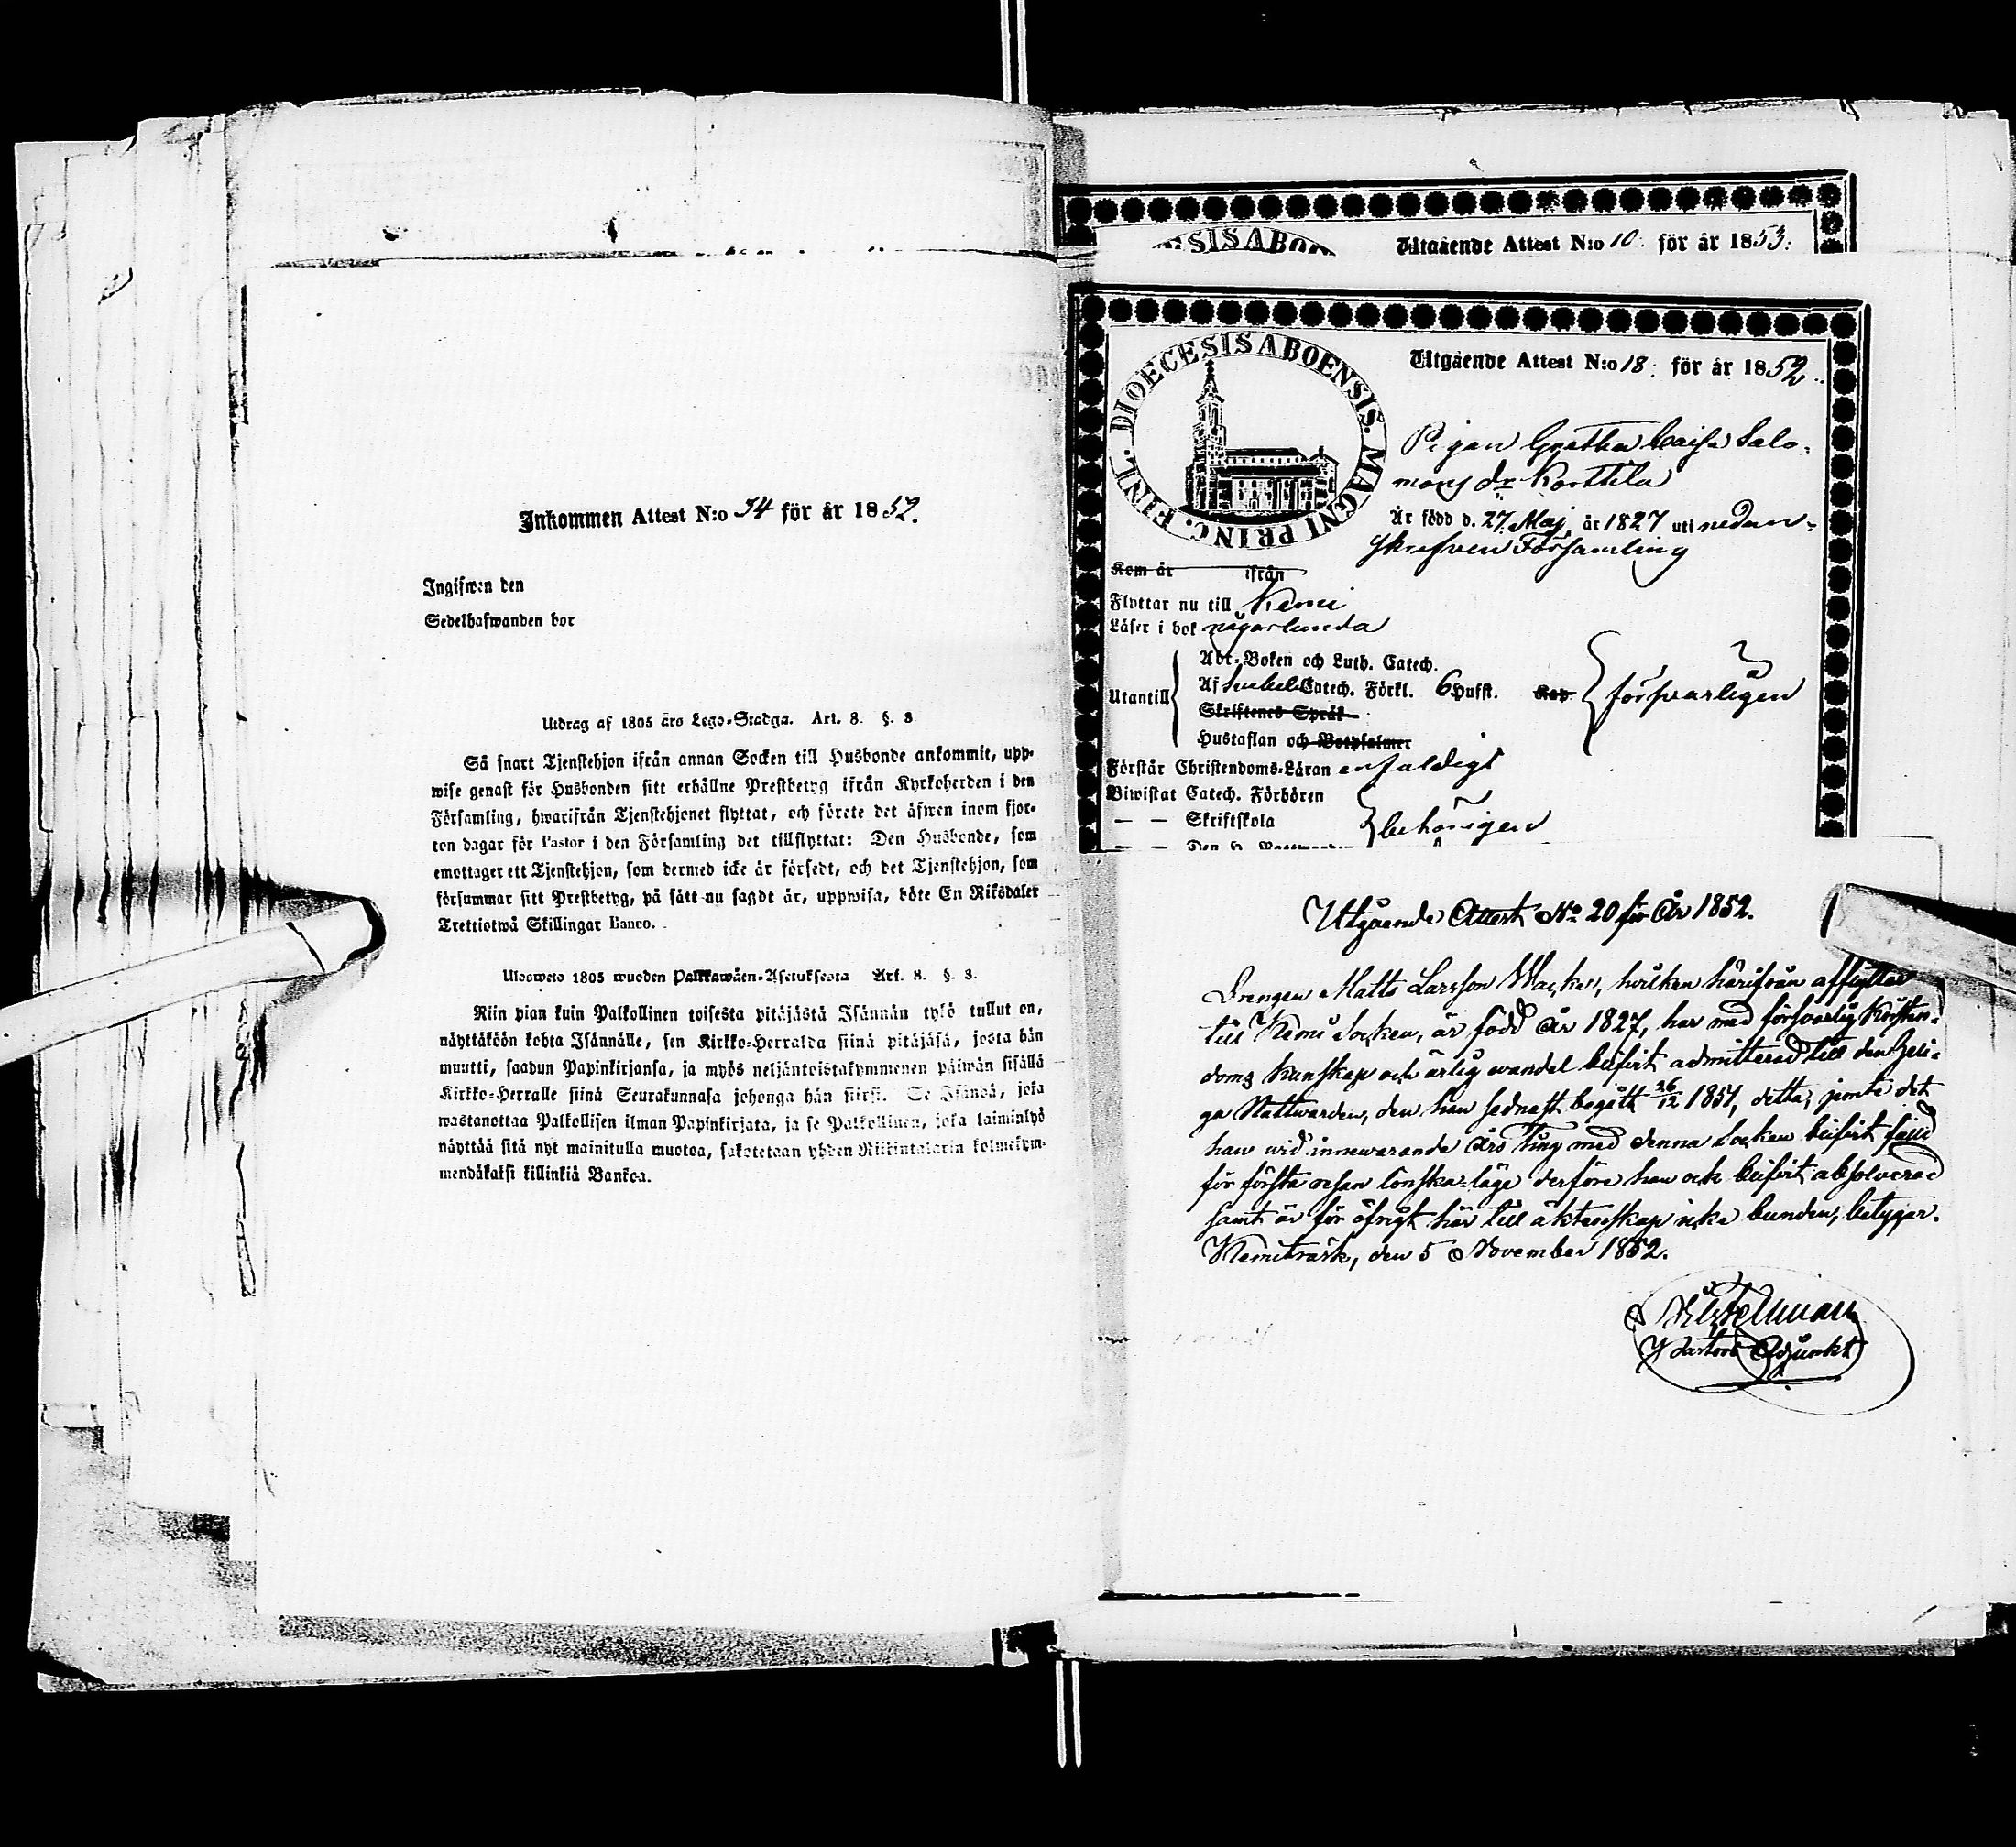 Inkommen Attest N:o 34 för år 1852.
Ingifwen den
Sedelhafwanden bor
Utdrag af 1805 års Lego-Stadga. Art. 8. §. 8
Så snart Tjenstehjon ifrån annan Socken till Husbonde ankommit, upp-
wise genast för Husbonden sitt erhållne Prestbetyg ifrån Kyrkoherden i den
Församling, hwarifrån Tjenstehjonet flyttat, och förete det äfwen inom fjor-
ton dagar för Pastor i den Församling det tillflyttat: Den Husbonde, som
emottager ett Tjenstehjon, som dermed icke är försedt, och det Tjenstehjon, som
försummar sitt Prestbetyg, på sätt nu sagdt är, uppwisa, böte En Riksdaler
Trettiotwå Skillingar Banco.
Ulosweto 1805 wuoden Palkkawäen-Asetuksesta Art. 8. §. 8.
Niin pian kuin Palkollinen toisesta pitäjästä Isännän tylö tullut on,
näyttäköön kohta Isännälle, sen Kirkko-Herralda siinä pitäjäsä, josta hän
muutti, saadun Papinkirjansa, ja myös neljäntoistakymmenen päiwän sisällä
Kirkko-Herralle siinä Seurakunnasa johonga hän siirsi. Se Isändä, joka
wastanottaa Palkollisen ilman Papinkirjata, ja se Palkollinen, joka laiminlyö
näyttää sitä nyt mainitulla muotoa, sakotetaan yhden Riikintalarin kolmekym-
mendäkaksi killinkiä Bankoa.
SIS ABO
Utgående Attest N:o 10. för år 1853.
DIOECESIS ABOENSIS. MAGNI PRINC. FINL.
Utgående Attest N:o 18. för år 1852.
Pigan Gretha Caisa Salo-
mons dr Korttila
Är född d. 27 Maj år 1827 uti nedan-
skrefven Församling
Kom år ifrån
Flyttar nu till Kemi
Läser i bok någorlunda
Utantill
Abc-Boken och Luth. Catech.
Af Catech. Förkl. 6 Hufst. Kap. försvarligen
Skriftenes Språk
Hustaflan och Botpsalmer
Förstår Christendoms-Läran enfaldigt
Biwistat Catech. Förhören
— — Skriftskola behörigen
Utgående Attest No 20 för År 1852.
Drengen Matts Larsson Wacker, hvilken härifrån afflyttar
till Kemi Socken, är född år 1827, har med försvarlig Kristen-
doms kunskap och ärlig vandel blifvit admitterad till den Heli-
ga Nattwarden, den han sednast begått 26/12 1851, detta, jemte det
han wid innewarande års Ting med denna Socken blifvit fälld
för första resan lönska-läge derföre han ock blifvit absolverad
samt är för öfrigt här till äktenskap icke bunden, betygar.
Kemiträsk, den 5 November 1852.
Pastors Adjunkt